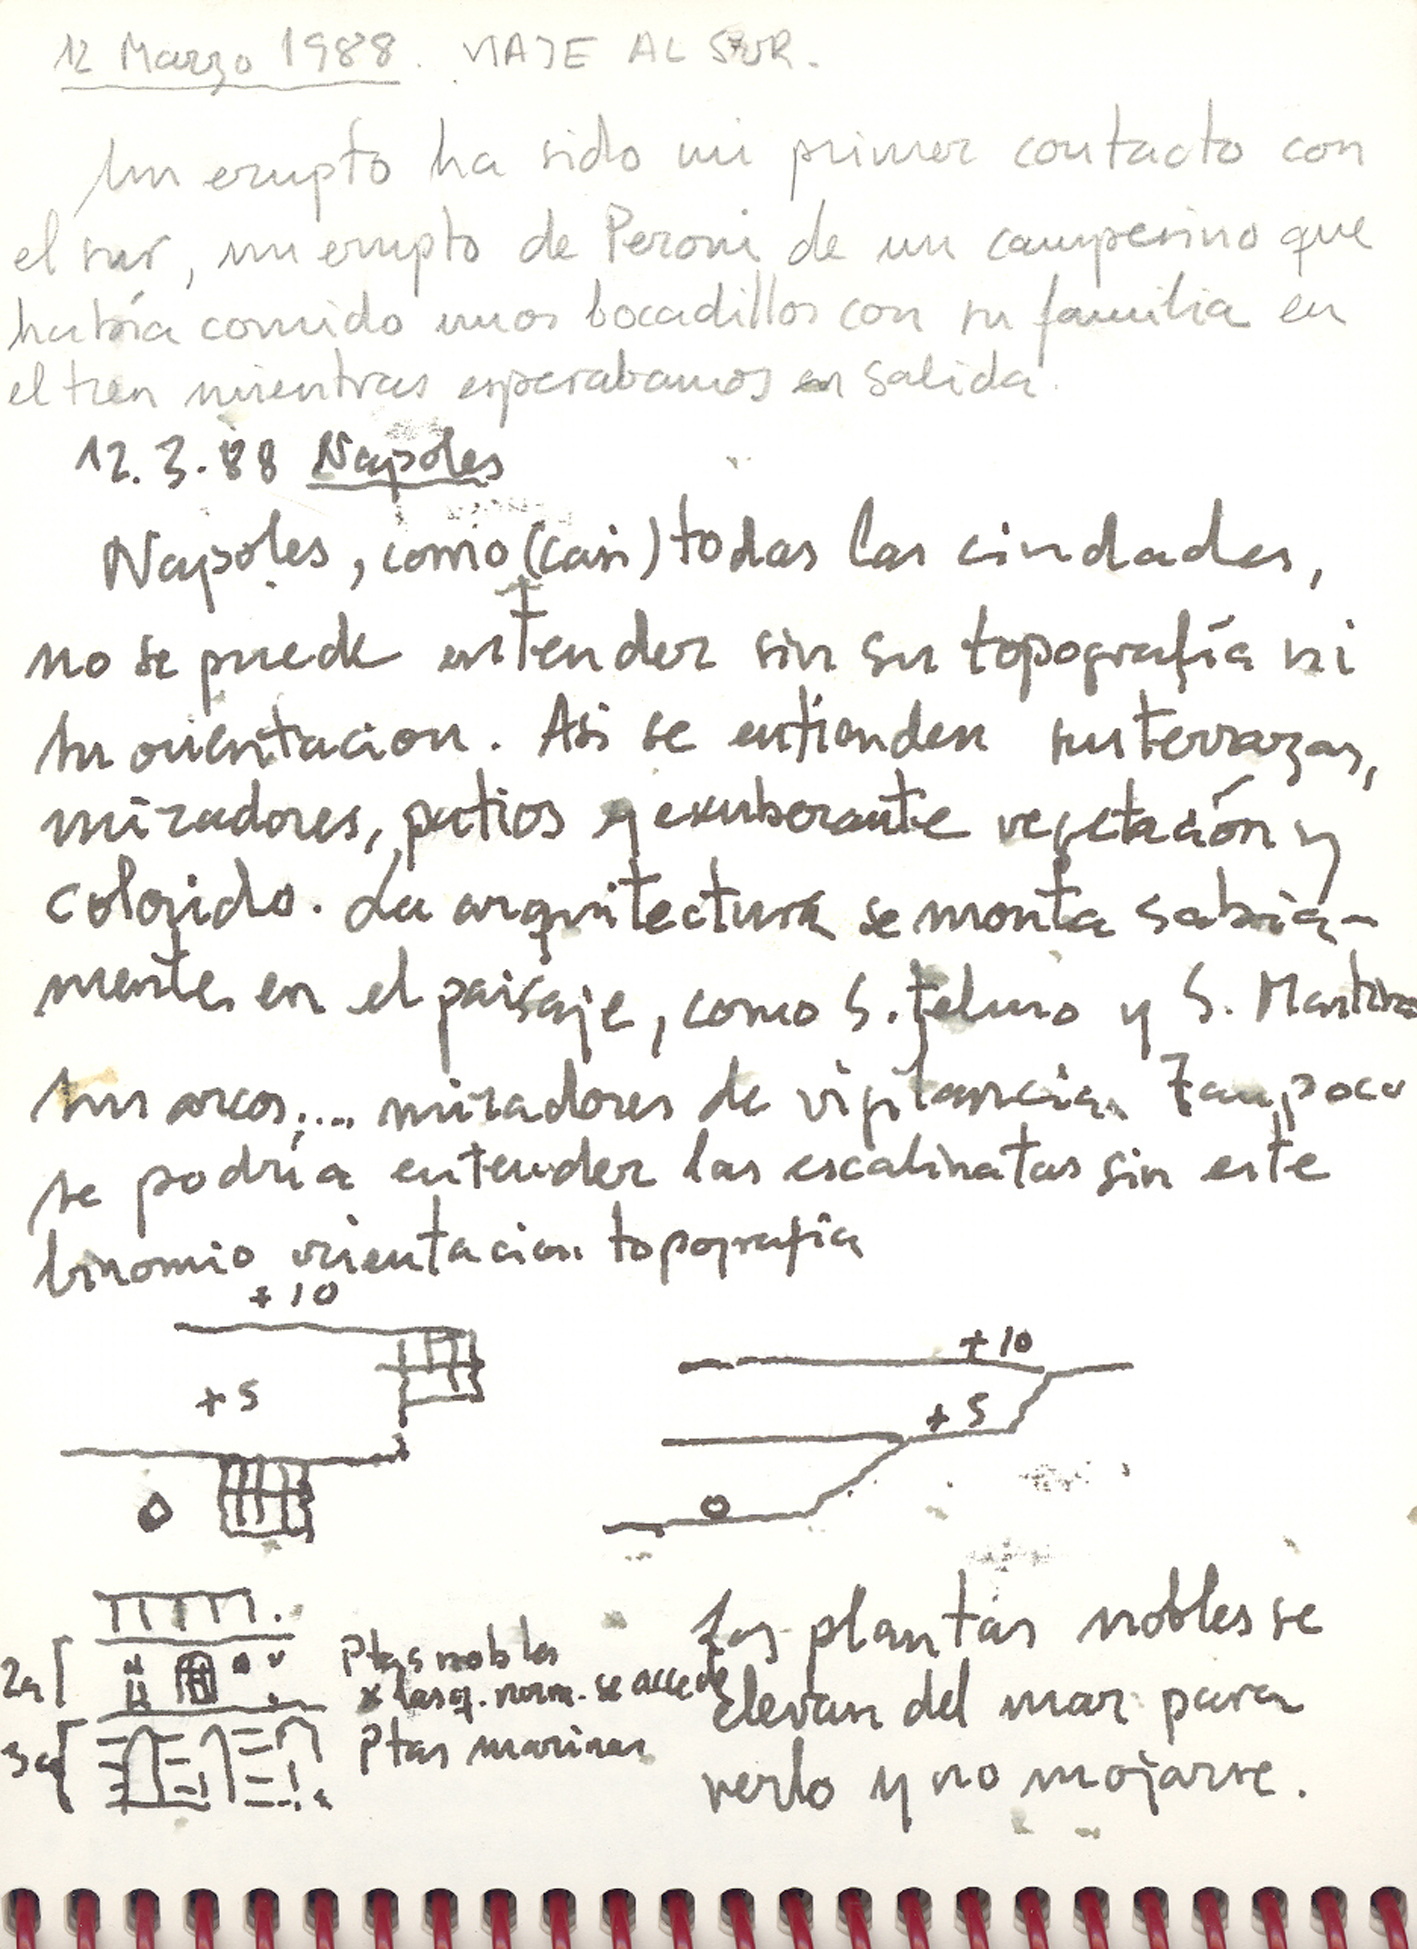 12 Marzo 1988. VIAJE AL SUR.
Un erupto ha sido mi primer contacto con
el sur, un erupto de Peroni de un campesino que
había comido unos bocadillos con su familia en
el tren mientras esperabamos su salida.
12.3.88 Napoles
Napoles, como (casi) todas las ciudades,
no se puede entender sin su topografía ni
su orientacion. Asi se entienden sus terrazas,
miradores, patios y exuberante vegetación y
colorido. La arquitectura se monta sabia-
mente en el paisaje, como S. Telmo y S. Martino
sus arcos,... miradores de vigilancia. Tampoco
se podría entender las escalinatas sin este
binomio orientacion topografía
+10
+10
+5
+5
0
0
2a
Ptas nobles
x las q. norm. se accede
3a
Ptas marinas
Las plantas nobles se
elevan del mar para
verlo y no mojarse.